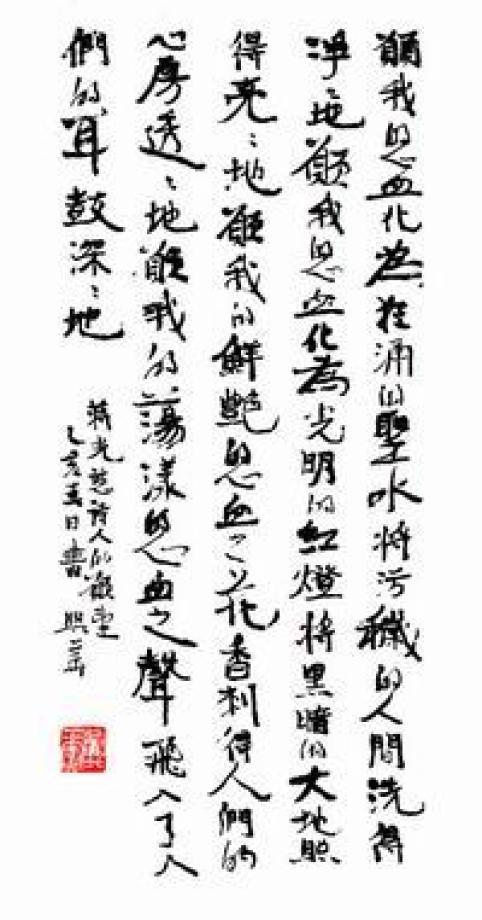 願我的心血化為狂涌的聖水將污穢的人間洗得
淨々地願我的心血化為光明的紅燈將黑暗的大地照
得亮々地願我的鮮艷的心血之花香刺得人們的
心房透々地願我的蕩漾的心血之聲飛入了人
們的耳鼓深々地
蔣光慈詩人的願望
乙亥春日書